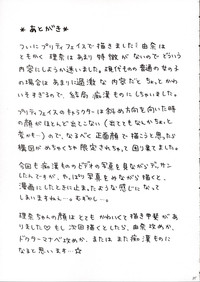 *あとがき*
ついにプリティフェイスで描きました!由奈は
ともかく 理奈はあまり特徴がないのでどういう
内容にしようか迷いました。現代ものの普通の女の子
の場合はあまりに過激な内容だとちょっとか
いそすぎるので、結局痴漢ものにしちゃいました。
プリティフェイスのキャラクターは斜め方向を向いた時
の顔がほとんど全くない(友とてもなんかちょっと
変かも…)ので、なるべく正面顔で描こうと思ったら
構図がめちゃくちゃ限定されちゃって困り果てました。
今回も痴漢もののビデオの写真を見ながらデッサン
したんですが、やっぱり写真をみながら描くと、
漫画にしたときに止まったような感じになって
しまいますねえ…。むずかしー。
理奈ちゃんの顔はとてもかわいくて描き甲斐があ
りました♡もし次回描くとしたら、由奈攻めか、
ドクターマナベ攻めか、またはまた痴漢ものに
なると思います…。